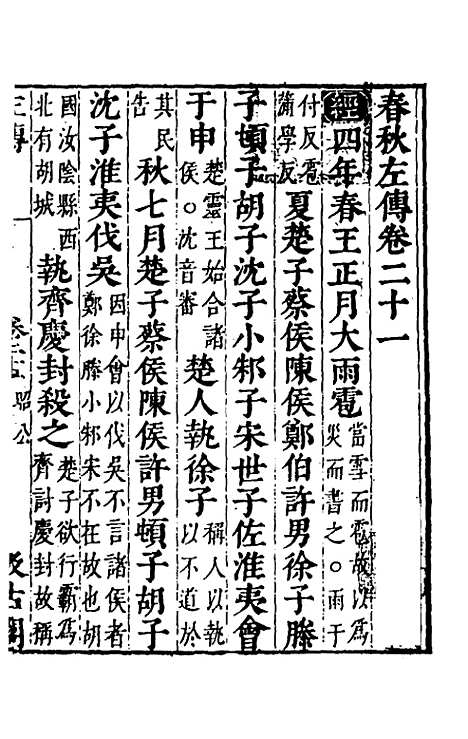 春秋左傳卷二十一
經四年春王正月大雨雹當雪而雹故以為災而書之○雨于
付反雹蒲學反夏楚子蔡侯陳侯鄭伯許男徐子滕
子頓子胡子沈子小邾子宋世子佐淮夷會
于申楚靈王始合諸侯○沈音審楚人執徐子稱人以執以不道於
其民告秋七月楚子蔡侯陳侯許男頓子胡子
沈子淮夷伐吳因申會以伐吳不言諸侯者鄭徐滕小邾宋不在故也胡
國汝陰縣西北有胡城執齊慶封殺之楚子欲行霸為齊討慶封故稱
昭公
汲古閣